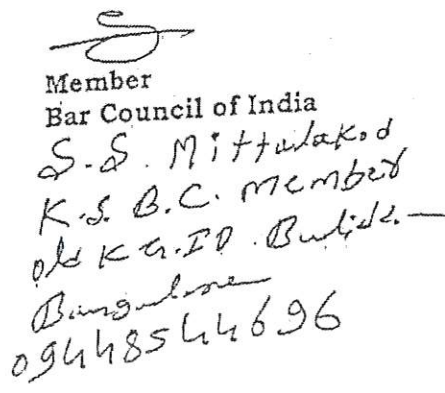 Member
Bar Council of India
S.S. Mittalakod
K.S.B.C. Member
old K.G.ID. Build.—
Bangalore
09448544696